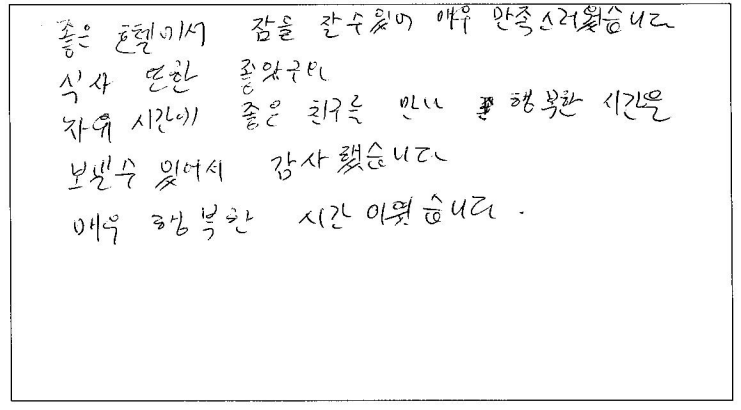 좋은 호텔에서 잠을 잘수있어 매우 만족스러웠습니다
식사 또한 좋았구요
자유 시간에 좋은 친구를 만나 행복한 시간을
보낼수 있어서 감사했습니다
매우 행복한 시간 이였습니다.